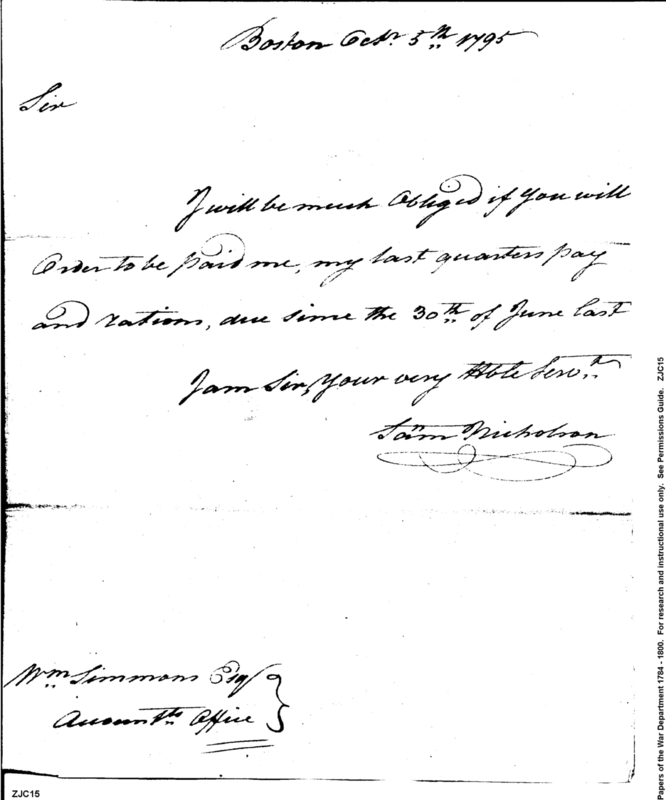 Boston Octr. 5th 1795
Sir
I will be much Obliged if You will
Order to be paid me, my last quarters pay
and rations, due since the 30th of June last
I am Sir, Your very Hble Servt
Sam Nicholson
Wm Simmons Esq
Accountts Office
Papers of the War Department 1784 - 1800. For research and instructional use only. See Permissions Guide. ZJC15
ZJC15